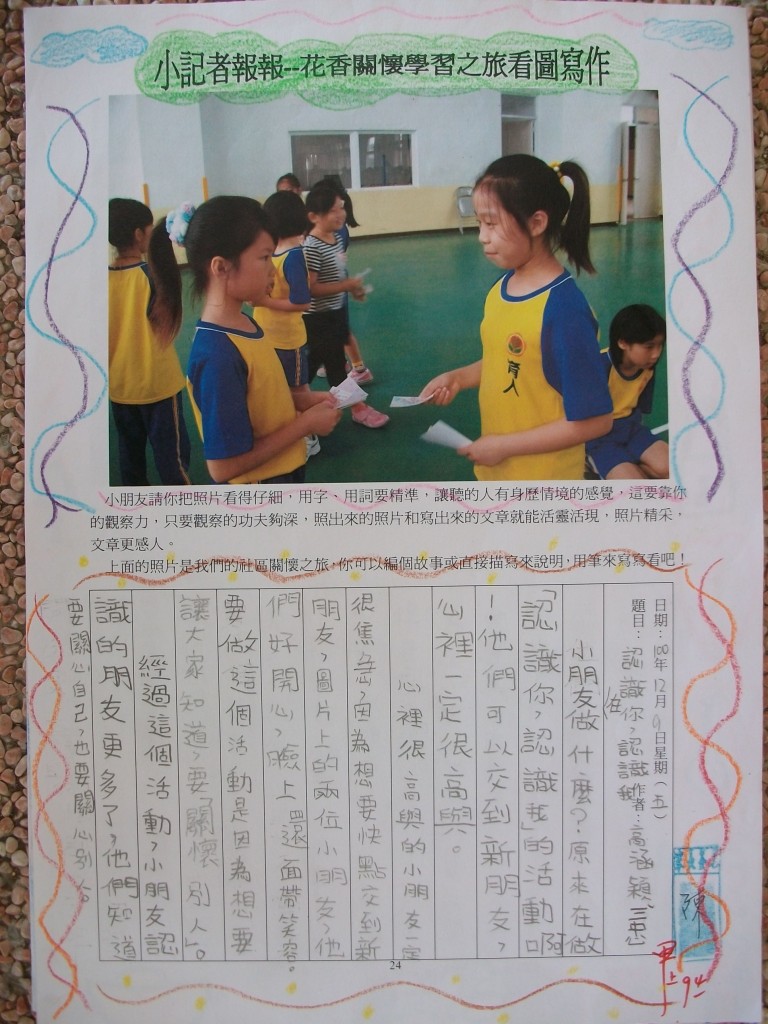 小記者報報--花香關懷學習之旅看圖寫作
育人
小朋友請你把照片看得仔細，用字、用詞要精準，讓聽的人有身歷情境的感覺，這要靠你
的觀察力，只要觀察的功夫夠深，照出來的照片和寫出來的文章就能活靈活現，照片精采，
文章更感人。
上面的照片是我們的社區關懷之旅，你可以編個故事或直接描寫來說明，用筆來寫寫看吧！
日期：100年12月9日星期（五）
題目：認識你，認識我 作者：高涵穎 三忠
小朋友做什麼？原來在做
「認識你，認識我」的活動啊
！他們可以交到新朋友，
心裡一定很高興。
心裡很高興的小朋友一定
很焦急，因為想要快點交到新
朋友，圖片上的兩位小朋友，他
們好開心，臉上還面帶笑容。
要做這個活動是因為想要
讓大家知道，要「關懷別人」。
經過這個活動，小朋友認
識的朋友更多了，他們知道
要關心自己，也要關心別人。
陳
甲上
94
24